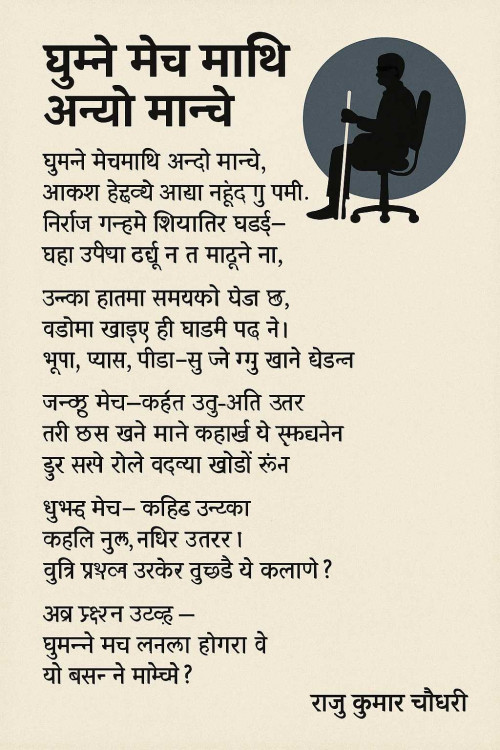 घुम्ने मेच माथि
अन्यो मान्चे
घुमने मेचमाथि अन्दो मान्चे,
आकश हेद्दव्ये आद्या नहूंद गु पमी.
निर्राज गन्हमे शियातिर घडर्ई–
घहा उपीया ढर्द्यू न त माटूने ना,
उन्का हातमा समयको घेज छ,
वडोमा खाड्ए ही घाडमी पढ ने।
भूपा, प्यास, पीडा–सु ज्ने ग्गु खाने द्येडन्न
मेच–कर्हत उतु-अति उतर
तरी छस खने माने कहार्ख ये
डुर सस्पे रोले वदव्या खोडों रूंन
मेच– कहिड उन्टका
कहलि नुल, नधिर उतरर।
वुत्रि उरकेर तुछडै ये कलाणे?
अब्र उटव्ह –
घुमन्ने मच लनला होगरा वे
यो बसन ने
राजु कुमार चौधरी